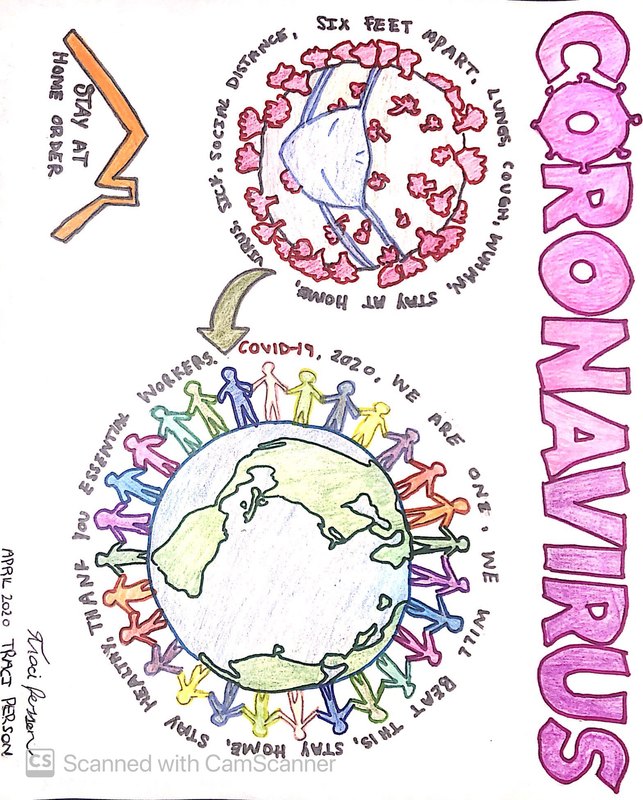 CORONAVIRUS
SIX FEET APART, LUNGS, COUGH, WUHAN, STAY AT HOME, VIRUS, SICK, SOCIAL DISTANCE,
STAY AT
HOME ORDER
COVID-19, 2020, WE ARE ONE, WE WILL BEAT THIS, STAY HOME, STAY HEALTHY, THANK YOU ESSENTIAL WORKERS.
Traci Person
APRIL 2020 TRACI PERSON
CS Scanned with CamScanner